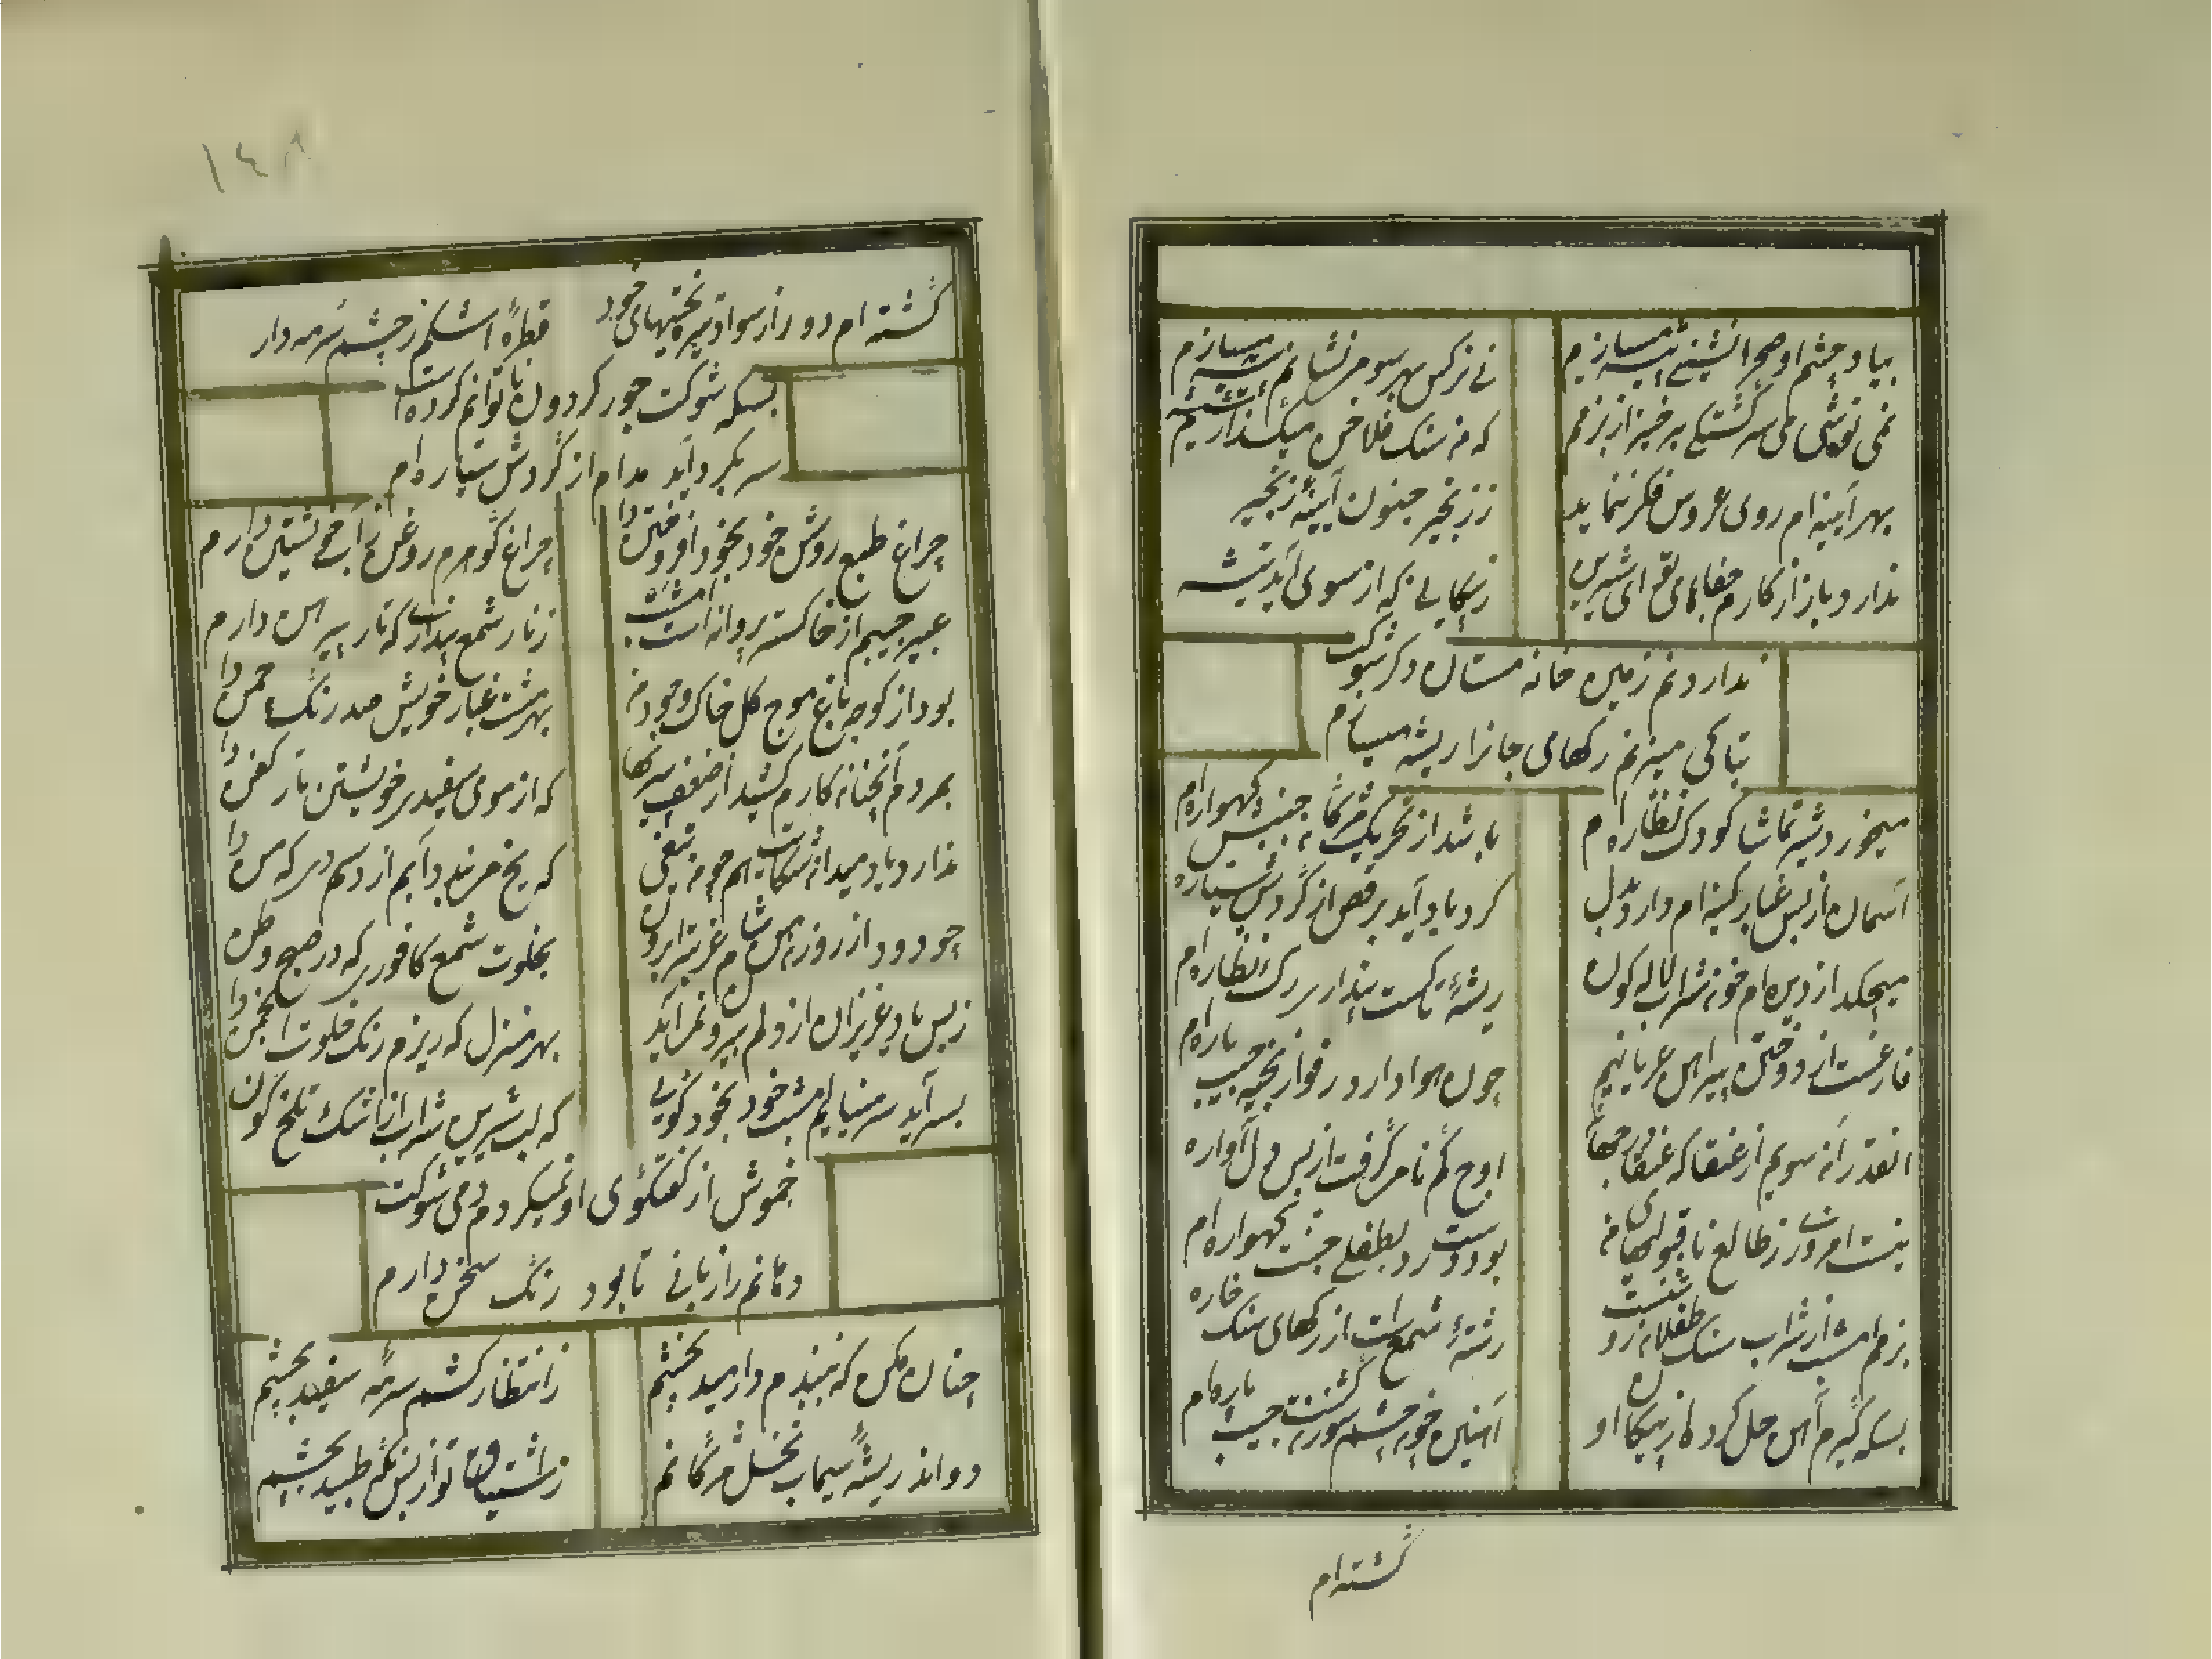 بیاد چشم او صحرا نشینی پیشه میسازم
نی نرکس بهر سو مر نشانم شیشه میسازم
نمی نوشی می سر کشتکی برخیز از بزمم
که من سنک فلاخن میکدازم
بهر آیینه ام روی عروس فکر ننماید
ز زنجیر جنون آیینهٔ زنجیر
ندارد باز از کارم جفاهای تو ای شیرین
که از سوی آید تیشه
ندارد نم زمین خانه مستان دکر شوکت
بتاکی میزنم رکهای جانرا ریشه میسازم
میخورد شیر تماشا کودک نظاره ام
باشد از تحریک مژکان جنبش کهواره ام
آسمان از بس غبار کینه ام دارد بدل
کردباد آید برقص از کردش سیاره ام
میچکد از دیده ام خون شراب لاله کون
ریشهٔ تاکست پنداری رک نظاره ام
فارغست از دوختن پیراهن عریانیم
چون هوا دارد رفو از بخیه جیب پاره ام
انقدر آنسویم از عنقا که عنقا از جهان
اوج کم نامی کرفت از بس دل آواره ام
نیست امروزی ز طالع ناقبولیهای من
بود دست رد بطفلی جنبش کهواره ام
بزم امشب از شراب سنک طفلان روشنست
رشتهٔ شمع است از رکهای سنک خاره ام
بسکه کیرم آهن حل کرده از پیکان او
آهنین چون چشم سوزن کشت جیب پاره ام
کشته ام
۱۴۸
کشته ام دور از سواد تیره بختیهای خود
قطرهٔ اشکم ز چشم سرمه دار
بسکه شوکت جور کردون ناتوانم کرده است
سر بکرد آید مدام از کردش سیاره ام
چراغ طبع روشن خود بخود افروختن دارم
چراغ کوهرم روغن ز آب خویشتن دارم
عبیر جیبم از خاکستر پروانه است امشب
ز تار شمع پنداری که تار پیرهن دارم
بود از کوچه باغ موج کل خاک وجود من
بهر مشت غبار خویش صد رنک چمن دارم
بمردم آنچنان کارم کشید از ضعف پیریها
که از موی سفید سر خویشتن تار کفن دارم
ندارد یاد میدان شکایت همچو من تیغی
که یخ مر بندد آبم از دم سردی که من دارم
چو دود از روزن شام غریبان برون
بخلوت شمع کافوری که در صبح وطن
ز بس یاد عزیزان از دلم بیرون نمر آید
بهر منزل که ریزم رنک خلوت انجمن دارم
بسر آید سر مینایم امشب خود بخود کویی
که لب شیرین شراب از اشک تلخ کوهکن
خموش از کفتکوی او نمیکردد دمی شوکت
دهانم را زبانی تا بود رنک سخن دارم
چنان مکن که نبیندم دار مید بچشم
ز انتظار کشم سرمهٔ سفید بچشم
دواند ریشهٔ سیماب نخل مژکانم
ز اشتیاق تو از بس نکه طپید بچشم